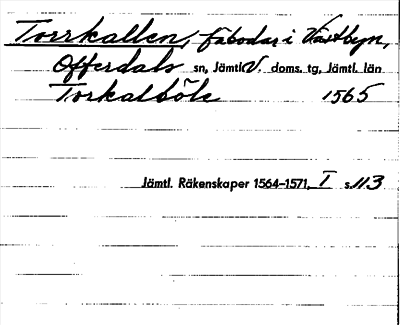 Torrkallen, fäbodar i Västbyn,
Offerdals sn, Jämtl. V. doms. tg, Jämtl. län
Torkalböle 1565
Jämtl. Räkenskaper 1564–1571, I s. 113